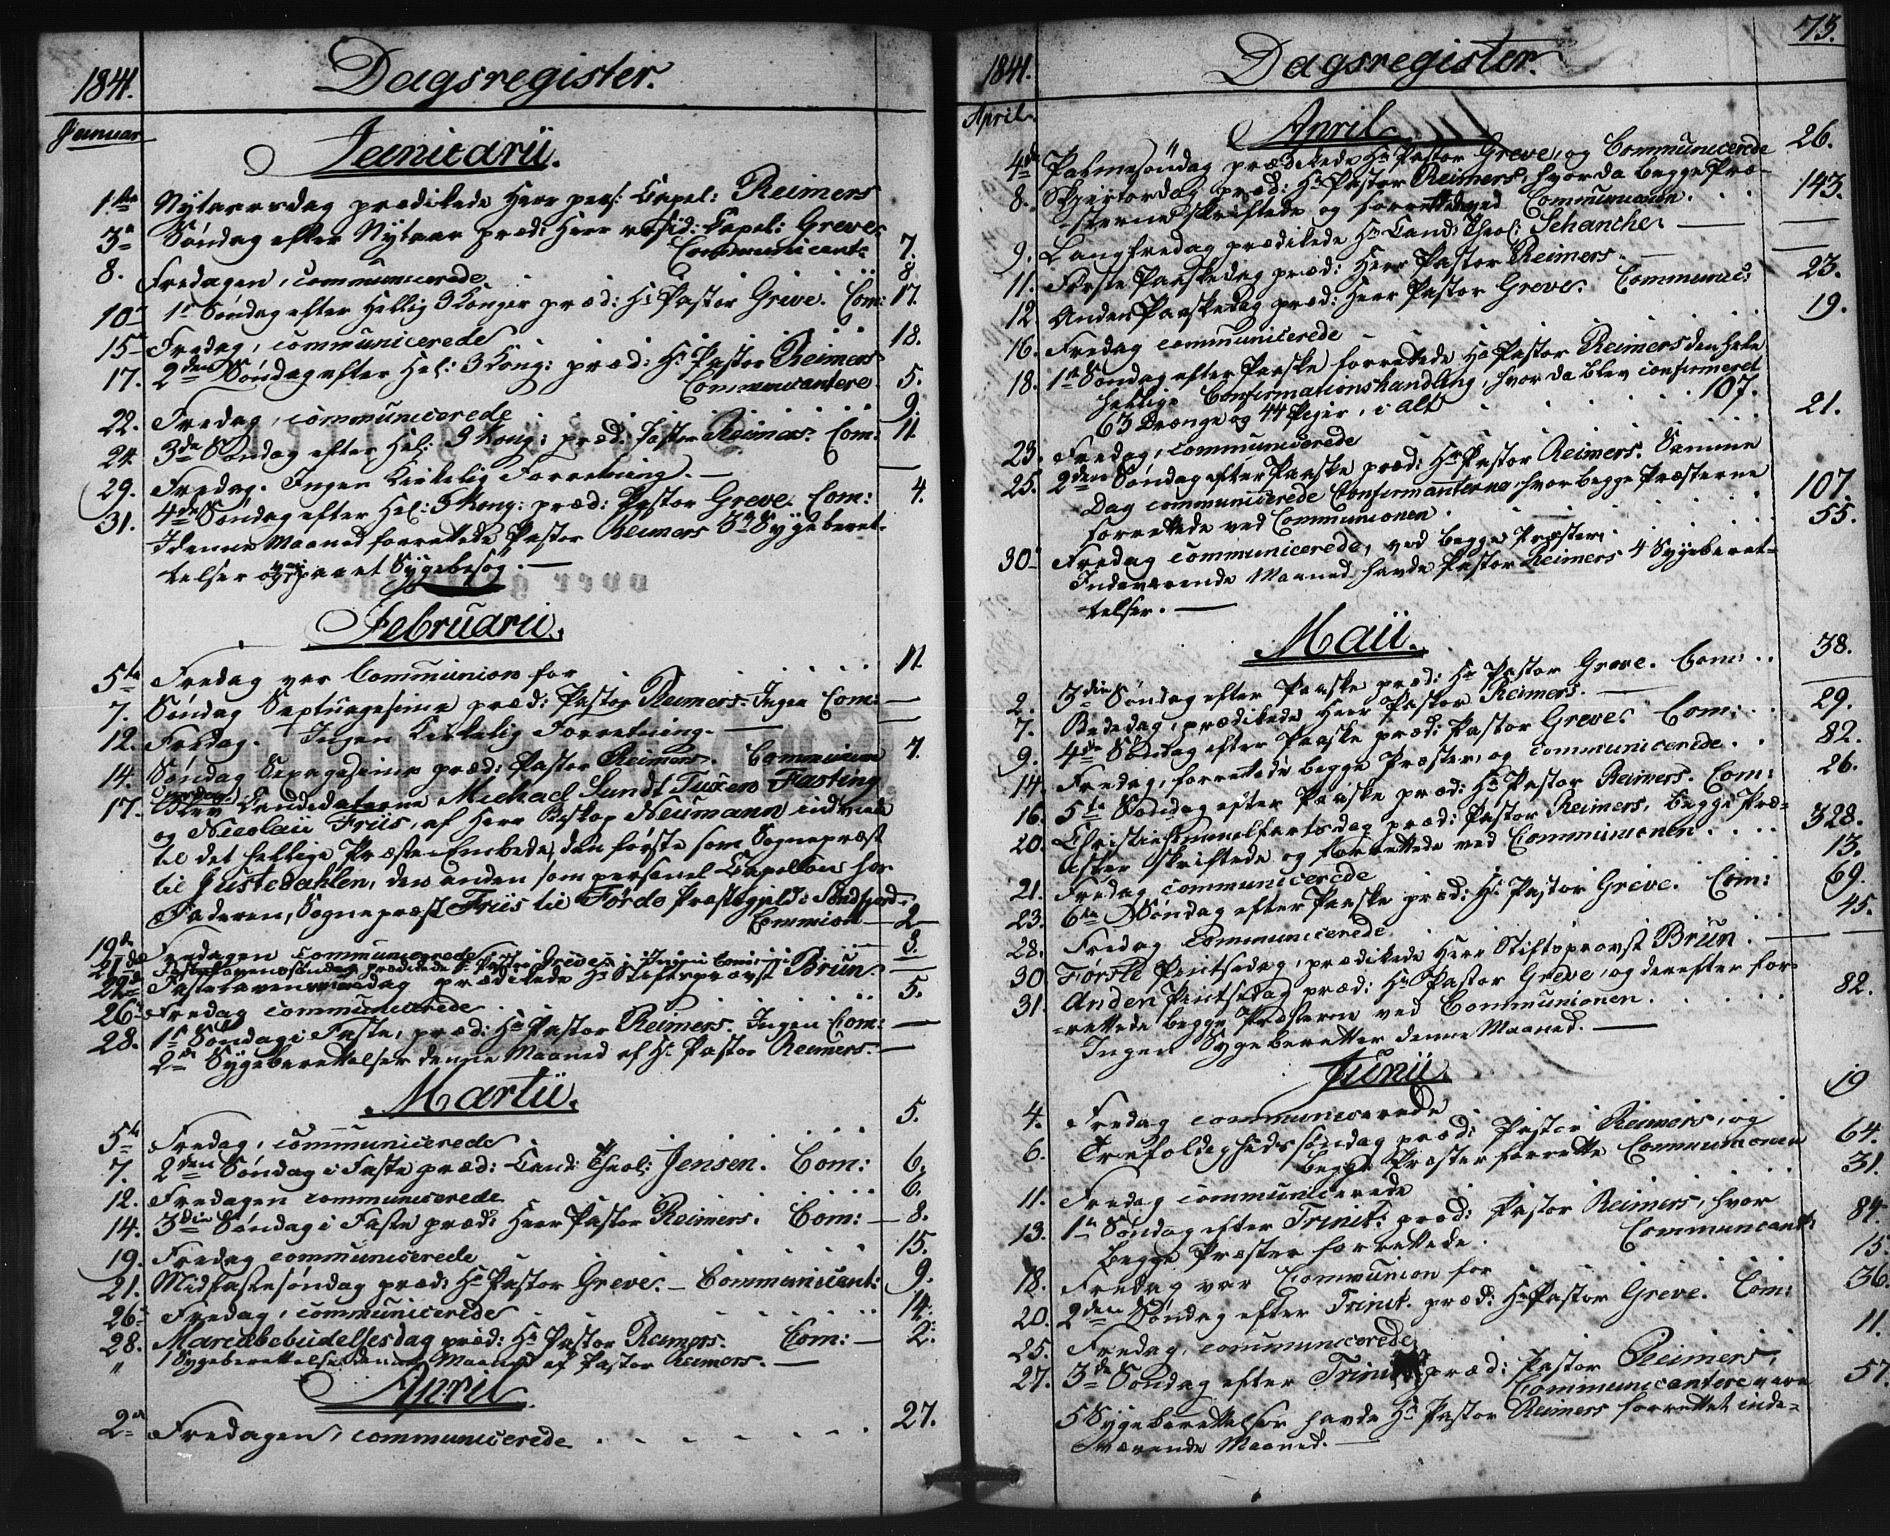 1841.
Dagsregister.
Januar
Januarii.
1ste Nytaarsdag prædikede Herr pers: Capel: Reimers
3die Søndag efter Nytaar præd: Herr resid: Capel: Greve.
Communicant: 7.
8. Fredagen, communicerede 8
10de 1ste Søndag efter Hellig 3 Konger præd: Hr Pastor Greve. Com: 17.
15de Fredag, communicerede 18.
17. 2den Søndag efter Hel: 3 Kong: præd: Hr Pastor Reimers
Communicantere 5.
22. Fredag, communicerede 9.
24. 3die Søndag efter Hel: 3 Kong: præd: Pastor Reimers. Com: 11.
29. Fredag. Ingen Kirkelig Forretning. —
31. 4de Søndag efter Hel: 3 Kong: præd: Pastor Greve. Com: 4.
I denne Maaned forrettede Pastor Reimers Sygeberet-
telser og Sygebesøg. —
Februarii.
5te Fredag var Communion for 11.
7. Søndag Septuagesima præd: Pastor Reimers. Ingen Com: —
12. Fredag. Ingen Kirkelig Forretning. —
14. Søndag Sexagesima præd: Pastor Reimers. Communion 4.
17. Onsdag blev Candidaterne Michael Sundt Tuxen Fasting
og Nicolaii Friis, af Herr Biskop Neumann indviede
til det hellige Præste-Embede, den første som Sognepræst
til Justedahlen, den anden som personel Capellan hos
Faderen, Sognepræst Friis til Førde Præstegjeld i Søndfjord.
19de Fredagen communicerede 3.
21de Fastelavenssøndag prædikede Hr Pastor Greve. Ingen Com: —
22de Fastelavensmandag prædikede Hr Stiftsprovst Brun —
26de Fredag communicerede 5.
28. 1ste Søndag i Faste, præd: Hr Pastor Reimers. Ingen Com: —
2de Sygeberettelser denne Maaned af Hr Pastor Reimers. —
Martii.
5te Fredag, communicerede 5.
7. 2den Søndag i Faste præd: Cand: Theol: Jensen. Com: 6.
12. Fredagen communicerede 6.
14. 3die Søndag i Faste præd: Herr Pastor Reimers. Com: — 8.
19. Fredag communicerede 15.
21. Midfastesøndag præd: Hr Pastor Greve. — Communicant: 9.
26. Fredag, communicerede 14.
28. Mariæbebudelsesdag præd: Hr Pastor Reimers. Com: — 2.
" 1 Sygeberettelse denne Maaned af Pastor Reimers. —
April
2den Fredagen, communicerede 27.
73.
1841.
Dagsregister.
April.
April
4de Palmesøndag prædikede Hr Pastor Greve, og Communicerede 26.
8. Skjærtorsdag præd: Hr Pastor Reimers, hvor da begge Præ-
sterne skriftede og forrettede ved Communionen. 143.
9. Langfredag prædikede Hr Cand: Theol: Schanche. —
11. Første Paaskedag præd: Herr Pastor Reimers. —
12. Anden Paaskedag præd: Herr Pastor Greve. Communic: 23.
16. Fredag communicerede 19.
18. 1ste Søndag efter Paaske forrettede Hr Pastor Reimers den hele
hellige Confirmationshandling, hvor da blev confirmeret
63 Drenge og 44 Piger, i Alt 107.
23. Fredag, communicerede 21.
25. 2den Søndag efter Paaske præd: Hr Pastor Reimers. Samme
Dag communicerede Confirmanterne, hvor begge Præsterne
forrettede ved Communionen. 107.
30. Fredag communicerede, ved begge Præster. 55.
Indeværende Maaned havde Pastor Reimers 4 Sygeberet-
telser. —
Maii.
2. 3die Søndag efter Paaske præd: Hr Pastor Greve. Com: 38.
7. Bededag, prædikede Herr Pastor Reimers. —
9. 4de Søndag efter Paaske præd: Pastor Greve. Com: 29.
14. Fredag, forrettede begge Præster, og communicerede 82.
16. 5te Søndag efter Paaske præd: Hr Pastor Reimers. Com: 26.
20. Christi Himmelfartsdag præd: Pastor Reimers, begge Præ-
ster skriftede og forrettede ved Communionen 328.
21. Fredag communicerede 13.
23. 6te Søndag efter Paaske præd: Hr Pastor Greve. Com: 69.
28. Fredag communicerede 45.
30 Første Pintsedag, prædikede Herr Stiftsprovst Brun —
31. Anden Pintsedag præd: Hr Pastor Greve, og derefter for-
rettede begge Præsterne ved Communionen. 82.
Ingen Sygeberetter denne Maaned. —
Junii.
4. Fredag communicerede 19
6. Trefoldighedssøndag præd: Pastor Reimers, og
begge Præster forrettede Communionen 64.
11. Fredag communicerede 31.
13. 1ste Søndag efter Trinit: præd: Pastor Reimers, hvor
begge Præster forrettede. Communicant: 84.
18. Fredag var Communion for 15
20. 2den Søndag efter Trinit. præd: Hr Pastor Greve. Com: 36.
25. Fredag, communicerede 11.
27. 3die Søndag efter Trinit præd: Pastor Reimers.
Communicantere vare 57.
5 Sygeberettelser havde Hr Pastor Reimers forrettet inde-
værende Maaned. —